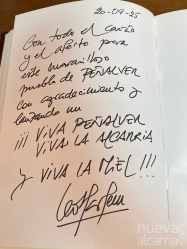 20-09-25
Con todo el cariño
y el afecto para
este maravilloso
pueblo de PEÑALVER
con agradecimiento y
lanzando un
¡¡¡ VIVA PEÑALVER
VIVA LA ALCARRIA
Y VIVA LA MIEL !!!
nueva
alcarria